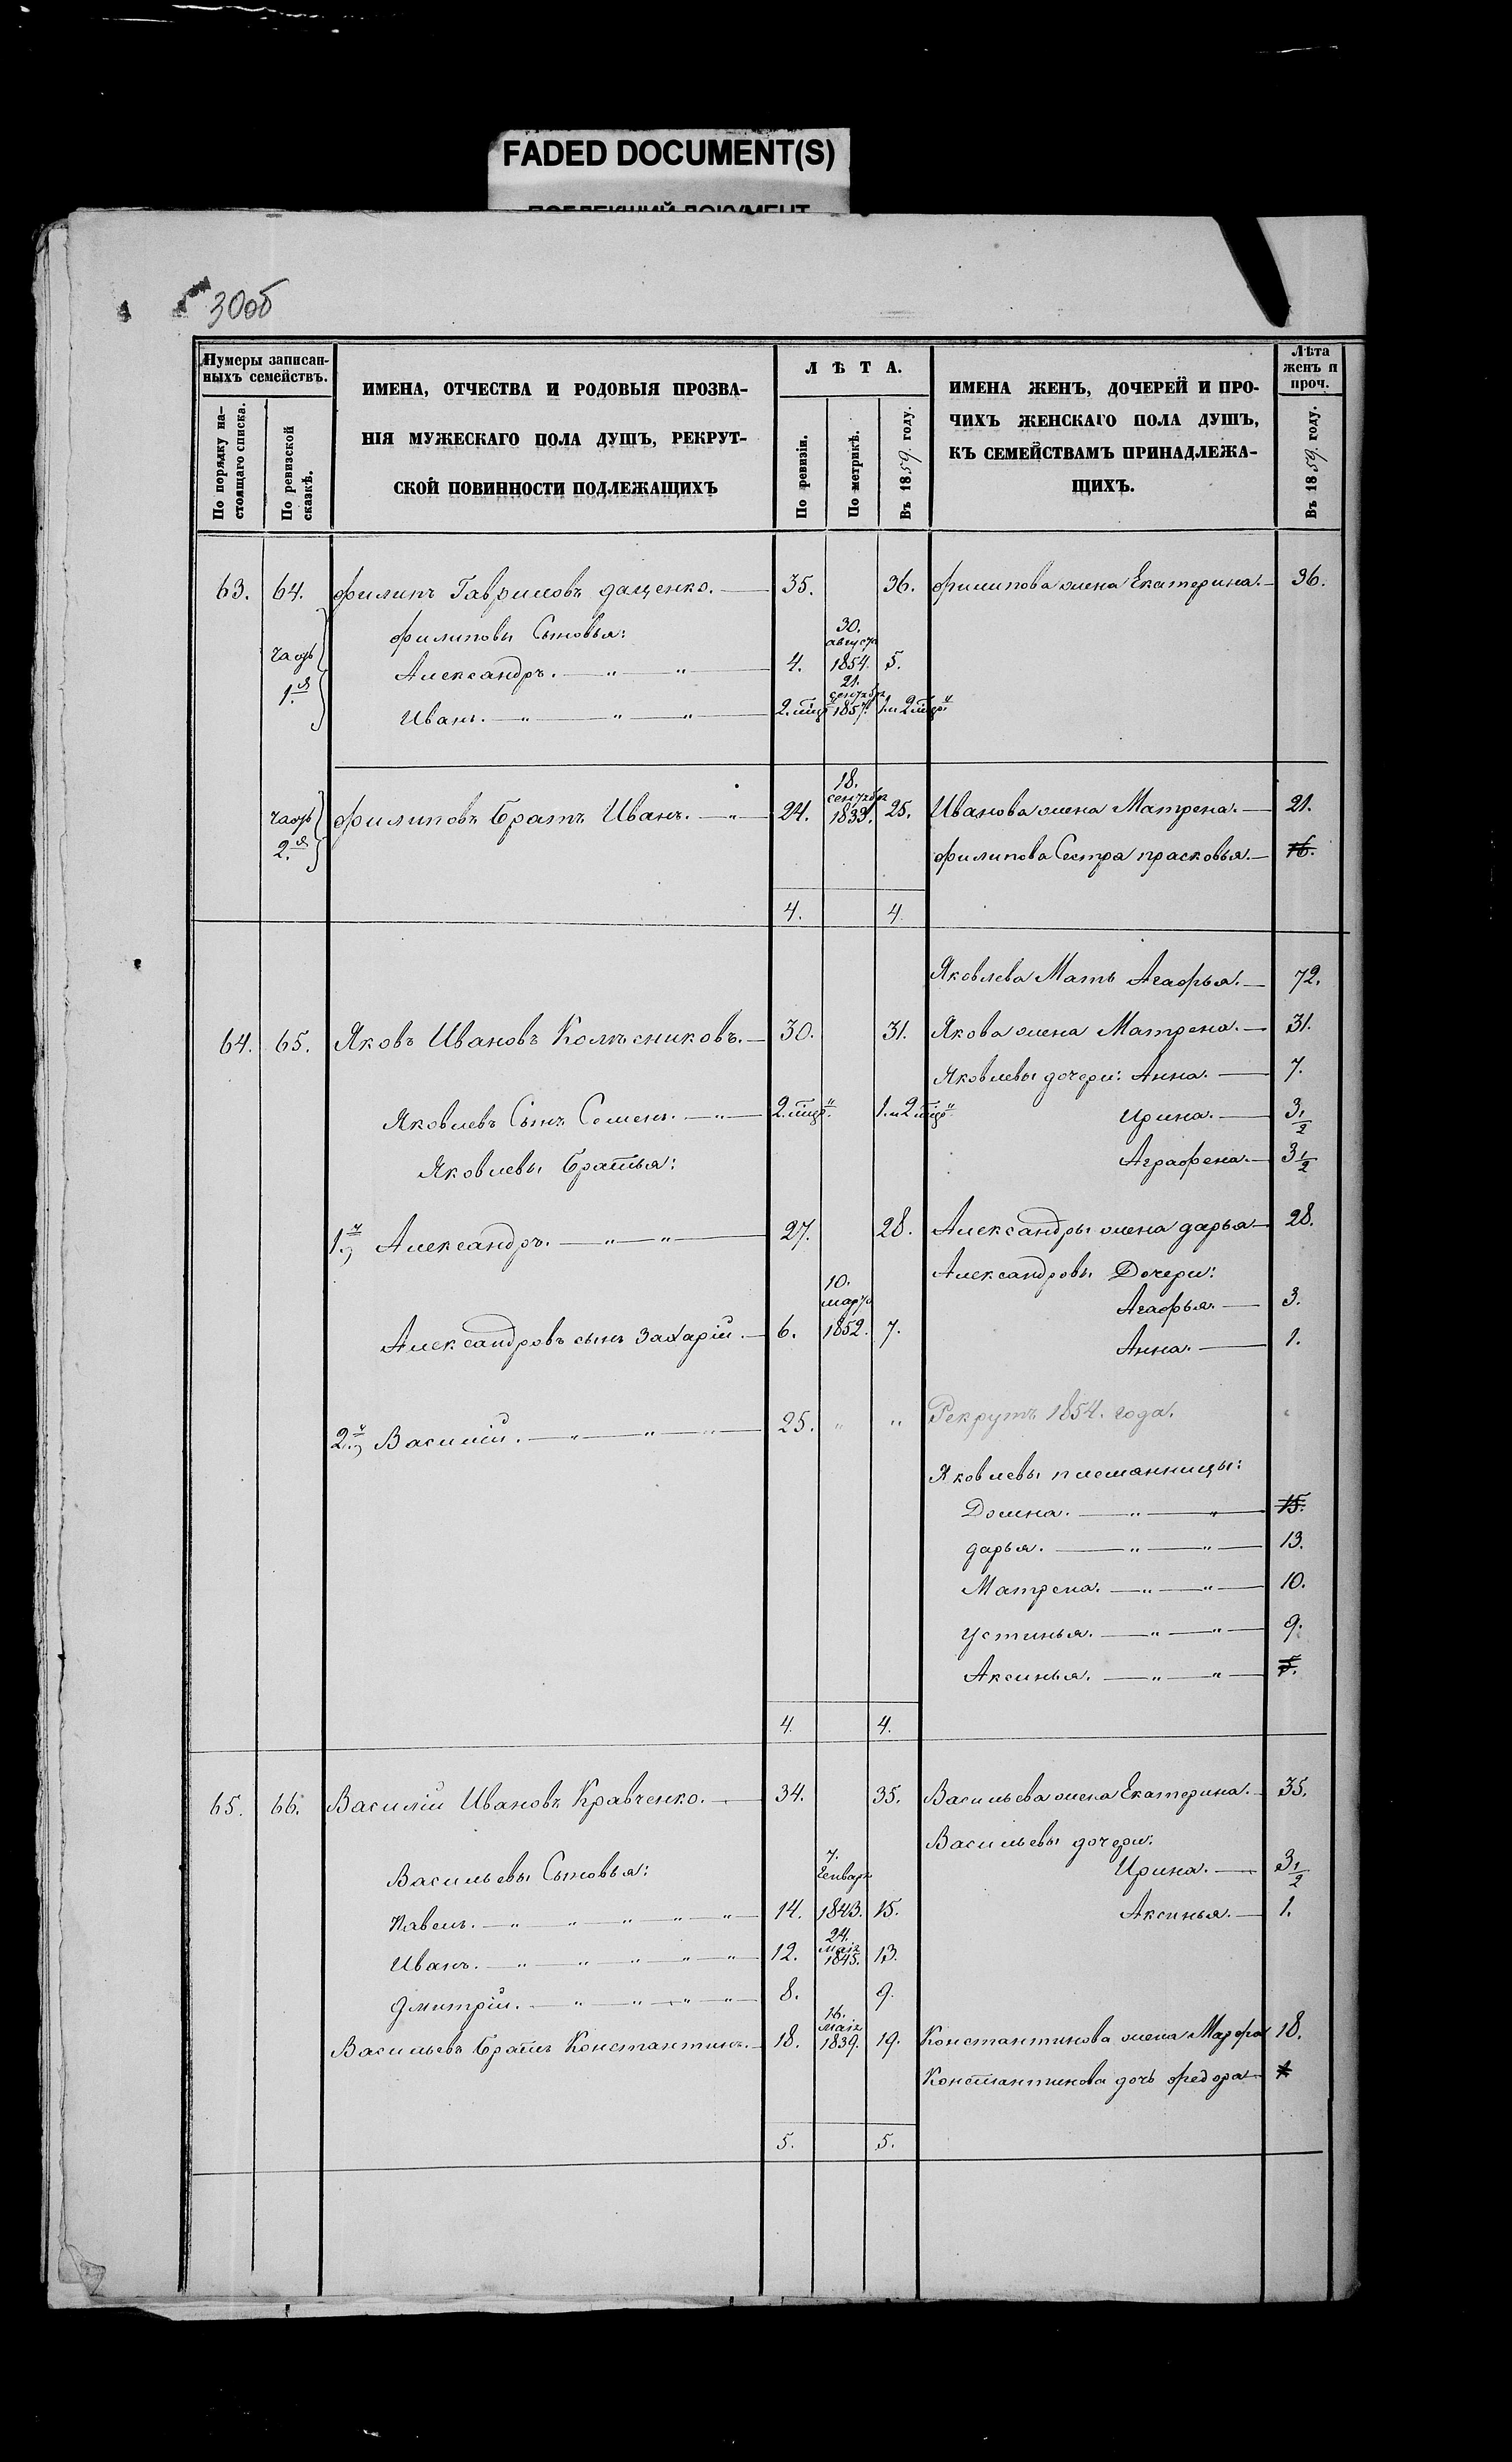 FADED DOCUMENT(S)
30об
Нумеры записан-
ныхъ семействъ.
По порядку на-
стоящаго списка.
По ревизской
сказкѣ.
ИМЕНА, ОТЧЕСТВА И РОДОВЫЯ ПРОЗВА-
НІЯ МУЖЕСКАГО ПОЛА ДУШЪ, РЕКРУТ-
СКОЙ ПОВИННОСТИ ПОДЛЕЖАЩИХЪ
ЛѢТА.
По ревизіи.
По метрикѣ.
Въ 1859 году.
ИМЕНА ЖЕНЪ, ДОЧЕРЕЙ И ПРО-
ЧИХЪ ЖЕНСКАГО ПОЛА ДУШЪ,
КЪ СЕМЕЙСТВАМЪ ПРИНАДЛЕЖА-
ЩИХЪ.
Лѣта
женъ и
проч.
Въ 1859 году.
63. 64. Филипъ Гавриловъ Даценко. 35. 36. Филипова жена Екатерина. 36.
Филиповы Сыновья:
часть 1.я
Александръ. 4. 30. августа 1854. 5.
Иванъ. 2. мцъ 21. сентября 1857. 1. и 2. мцъ
часть 2.я
Филиповъ Братъ Иванъ. 24. 18. сентября 1833. 25. Иванова жена Матрена. 21.
Филипова Сестра Прасковья. 16.
4. 4
Яковлева Мать Агафья. 72.
64. 65. Яковъ Ивановъ Колѣсниковъ. 30. 31. Якова жена Матрена. 31.
Яковлевы дочери: Анна. 7.
Яковлевъ Сынъ Семенъ. 2. мцъ 1. и 2 мцъ Ирина. 3 1/2
Яковлевы Братья: Аграфена. 3 1/2
1.й Александръ. 27. 28. Александры жена Дарья 28.
Александровы Дочери:
Агафья. 3.
Александровъ сынъ Захарій. 6. 10. марта 1852. 7.
Анна. 1.
2.й Василій. 25. " " Рекрутъ 1854. года.
Яковлевы племянницы:
Домна. 15.
Дарья. 13.
Матрена. 10.
Устинья. 9.
Аксинья.
4. 4.
65. 66. Василій Ивановъ Кравченко. 34. 35. Васильева жена Екатерина. 35.
Васильевы дочери:
Васильевы Сыновья: Ирина. 3 1/2
Павелъ. 14. 7. Генваря 1843. 15. Аксинья. 1.
Иванъ. 12. 24. маія 1845. 13.
Дмитрій. 8. 9.
Васильевъ Братъ Константинъ. 18. 16. маія 1839. 19. Константинова жена Марфа 18.
Константинова дочь Федора
5. 5.